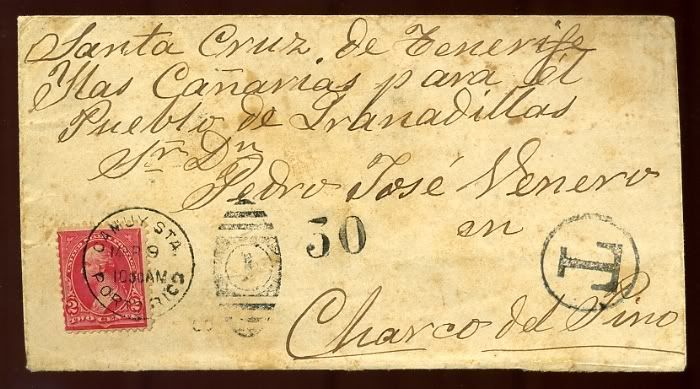 Santa Cruz de Tenerife
Yslas Cañarias para él
Pueblo de Granadillas
Sr. Dn
Pedro José Venero
en
Charco del Pino
CAMUY STA.
MAR 9
1030AM
PORTO RICO
2 2
TWO CENTS
50
T